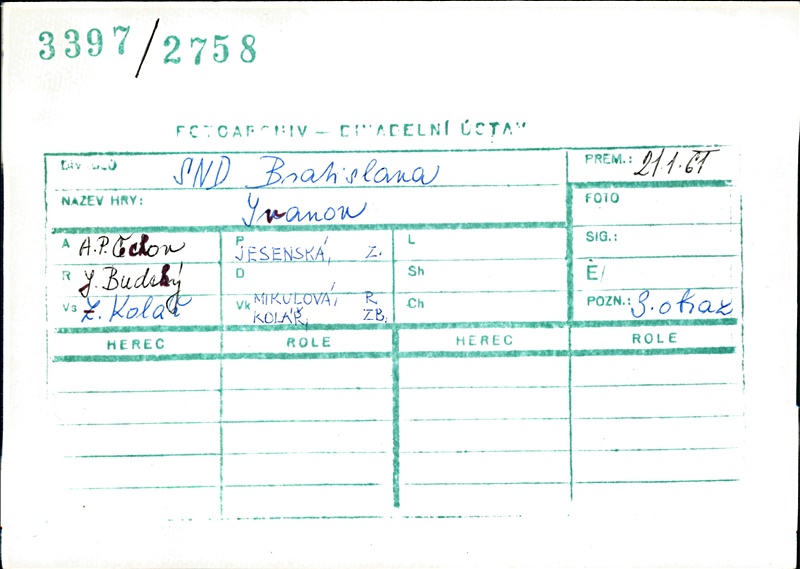 3397/2758
FOTOARCHIV – DIVADELNÍ ÚSTAV
DIVADLO SND Bratislava PREM.: 21.1.61
NÁZEV HRY: Ivanov FOTO
A A.P. Čechov P JESENSKÁ, Z. L SIG.:
R J. Budský D Sh Č/
Vs Z. Kolář Vk MIKULOVÁ, R. Ch POZN.: 3. obraz
KOLÁŘ, ZB.
HEREC ROLE HEREC ROLE